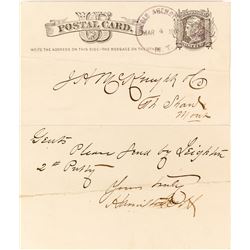 POSTAL CARD.
WRITE THE ADDRESS ON THIS SIDE - THE MESSAGE ON THE OTHER
MAR 4
J H McKnight & Co
Ft Shaw
Mont
Gents Please send by Leighton
2 # Putty
Yours Truly
Hamilton